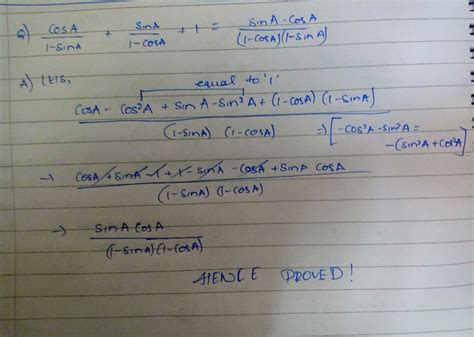 Q) CosA/1-SinA + SinA/1-CosA + 1 = SinA·CosA/(1-CosA)(1-SinA)
A) LHS,
equal to '1'
CosA - Cos²A + SinA - Sin²A + (1-CosA)(1-SinA)/(1-SinA)(1-CosA)
=> [-Cos²A - Sin²A =
-(Sin²A + Cos²A)]
→ CosA + SinA - 1 + 1 - SinA - CosA + SinA CosA/(1-SinA)(1-CosA)
→ SinA CosA/(1-SinA)(1-CosA)
HENCE PROVED!